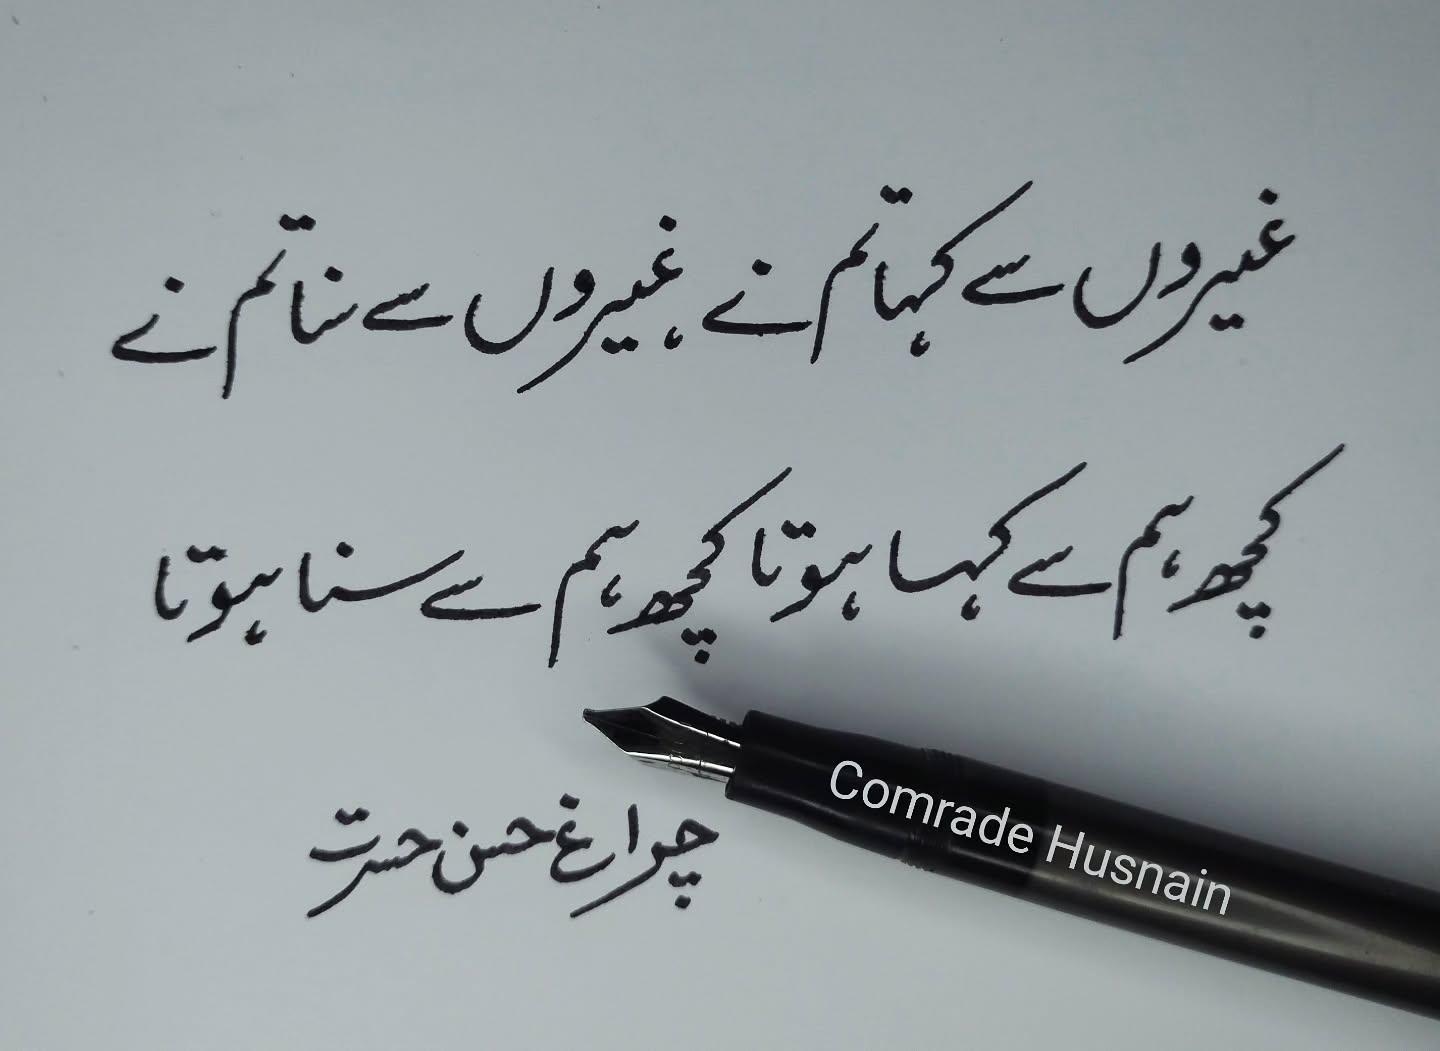 غیروں سے کہا تم نے، غیروں سے سنا تم نے
کچھ ہم سے کہا ہوتا کچھ ہم سے سنا ہوتا
چراغ حسن حسرت
Comrade Husnain